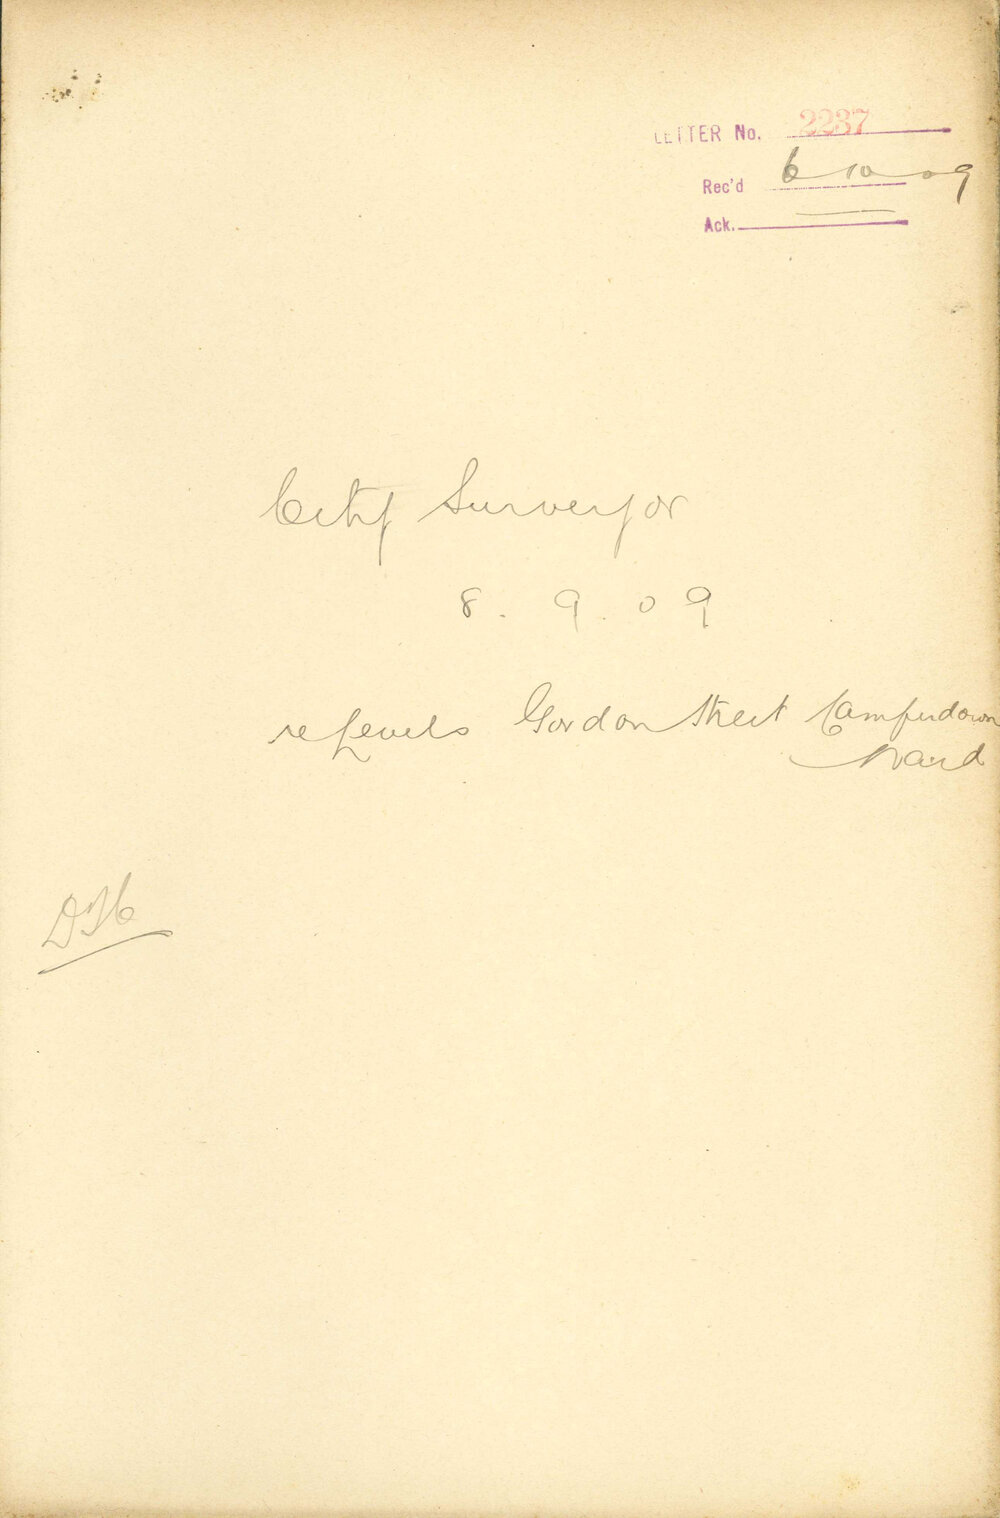 LETTER No. 2237
Rec'd 6 10 09
Ack.
City Surveyor
8. 9. 09
re Levels Gordon Street Camperdown
Ward